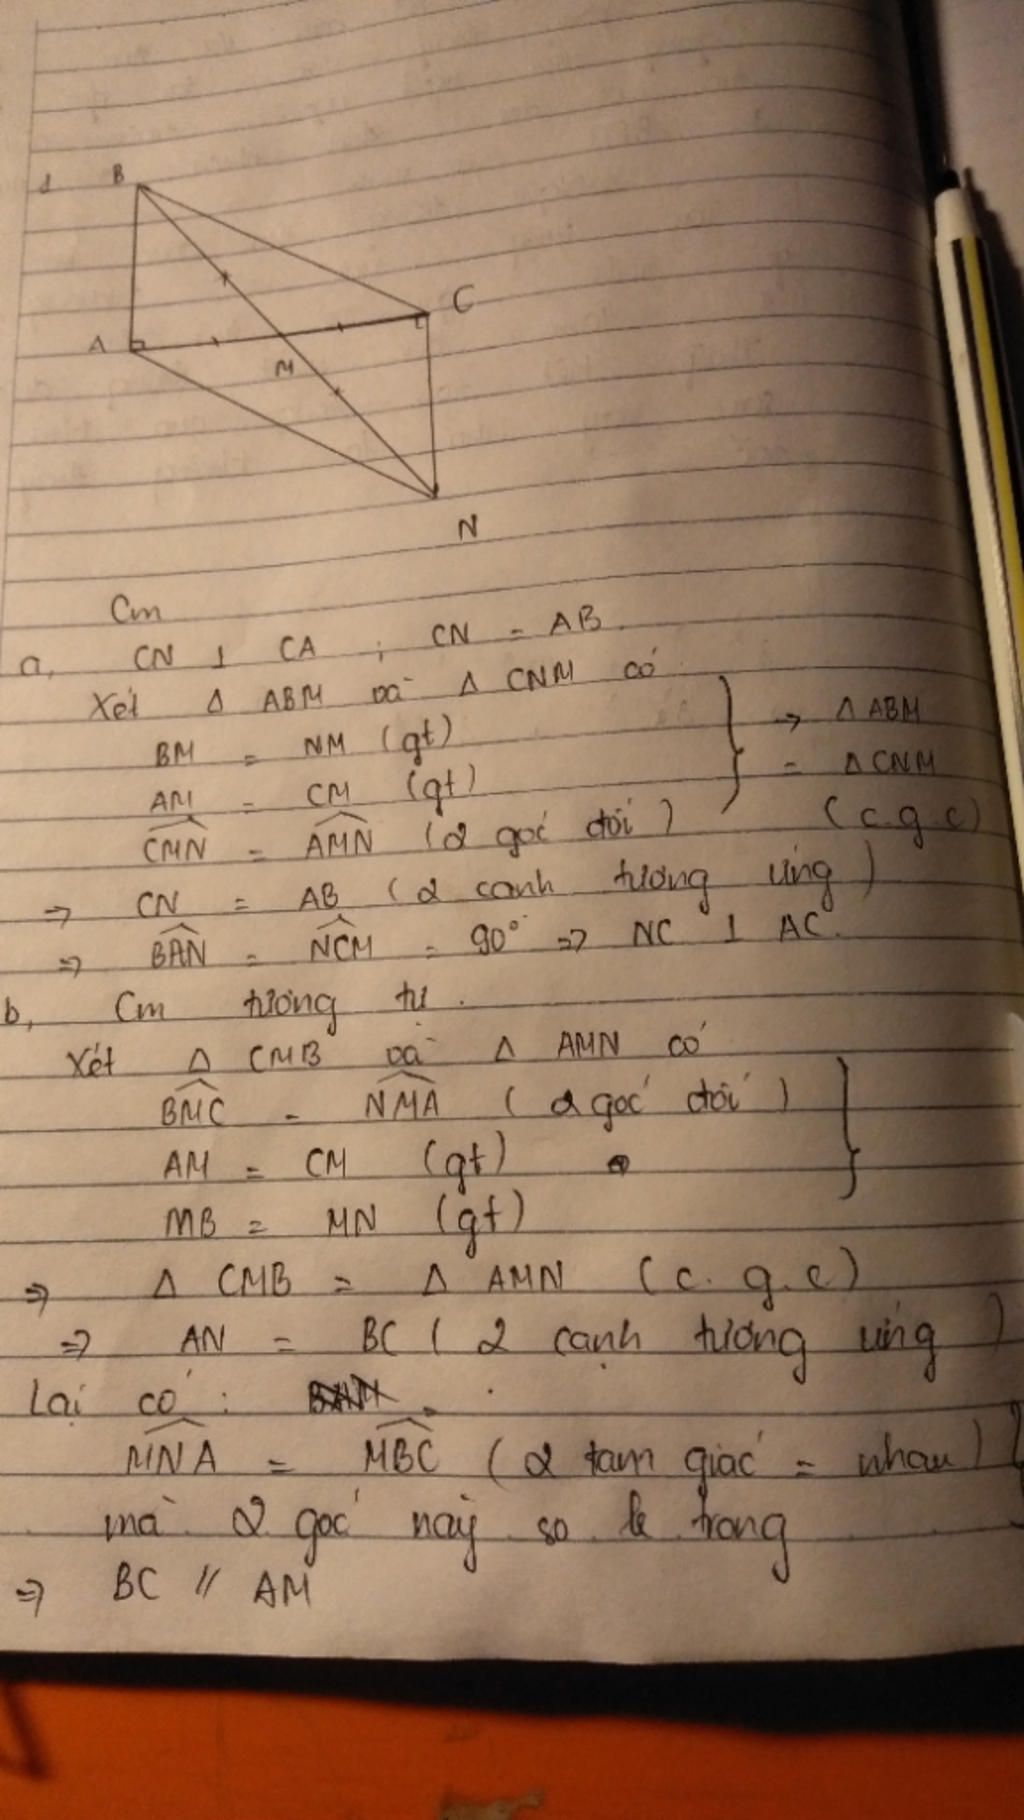 1 B
C
A
M
N
Cm
a, CN ⊥ CA ; CN = AB.
Xét Δ ABM và Δ CNM có
BM = NM (gt)
AM = CM (gt)
CMN = AMN (2 goć đối)
} → Δ ABM
= Δ CNM
(c.g.c)
⇒ CN = AB (2 canh tương ưńg)
⇒ BAN = NCM = 90° ⇒ NC ⊥ AC.
b, Cm tương tự.
Xét Δ CMB và Δ AMN có
BMC = NMA (2 goć đối) }
AM = CM (gt)
MB = MN (gt)
⇒ Δ CMB = Δ AMN (c.g.c)
⇒ AN = BC (2 cạnh tương ưńg)
Lại có :
MNA = MBC (2 tam giać = nhau) }
mà 2 goć này so le trong
⇒ BC // AM